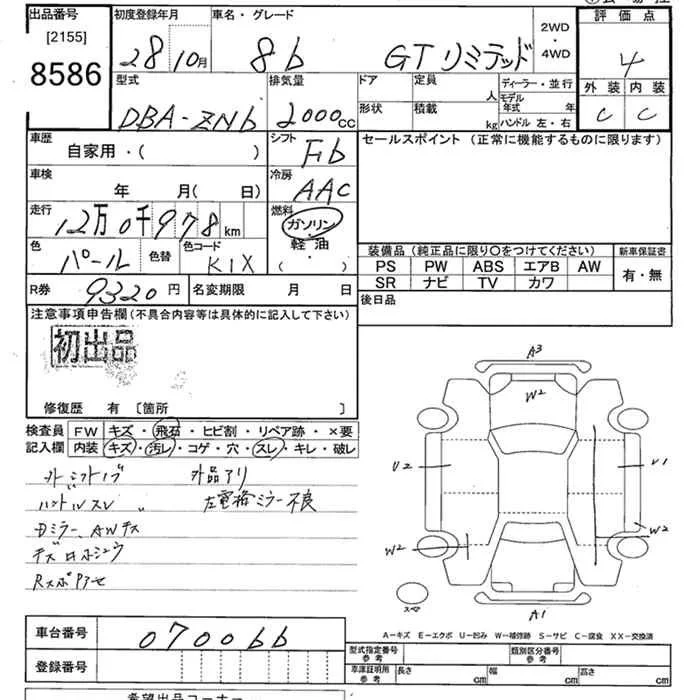 出品番号
[2155]
8586
初度登録年月
28 10月
車名・グレード
86 GTリミテッド
2WD
・
4WD
評価点
4
外装 内装
C C
型式
DBA-ZN6
排気量
2000cc
ドア
形状
定員 人
積載 kg
ディーラー・並行
モデル年式 年
ハンドル 左・右
車歴
自家用・( )
シフト
F6
セールスポイント (正常に機能するものに限ります)
車検
年 月( 日)
冷房
AAC
走行
12万0千978km
燃料
ガソリン
・
軽油
( )
色
パール
色替
色コード
K1X
装備品 (純正品に限り〇をつけてください)
新車保証書
PS PW ABS エアB AW
SR ナビ TV カワ
有・無
R券 9320円
名変期限 月 日
後日品
注意事項申告欄(不具合内容等は具体的に記入して下さい)
初出品
修復歴 有 〔箇所 〕
検査員記入欄
FW キズ・飛石・ヒビ割・リペア跡・×要
内装 キズ・汚レ・コゲ・穴・スレ・キレ・破レ
外品アリ
左電格ミラー不良
A3
W2
U2
U1
W2
W2
スマ
A1
A-キズ E-エクボ U-凹み W-補修跡 S-サビ C-腐食 XX-交換済
車台番号
070066
登録番号
型式指定番号
参考
類別区分番号
参考
車庫証明用
参考
長さ cm
幅 cm
高さ cm
希望出品コーナー